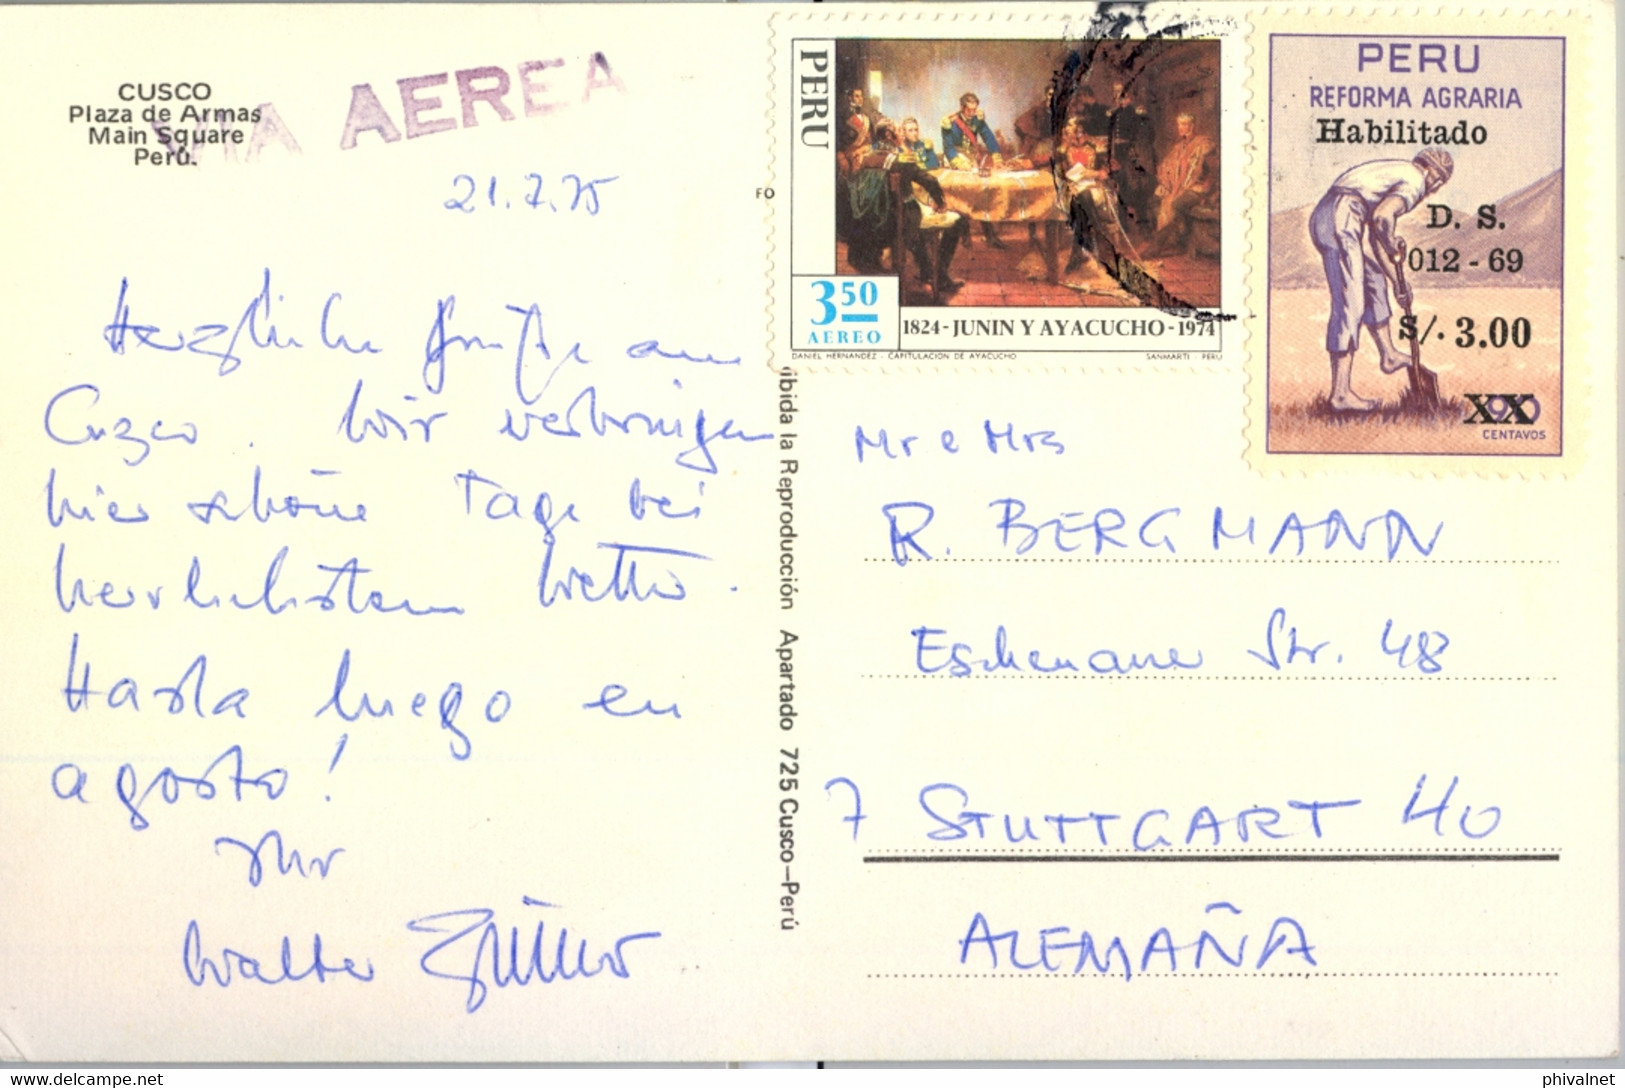 CUSCO
Plaza de Armas
Main Square
Perú.
VIA AEREA
21.7.75
Herzliche Grüße aus
Cuzco. Wir verbringen
hier schöne Tage bei
herrlichstem Wetter.
Hasta luego en
agosto!
Ihr
Walter
FO
ibida la Reproducción Apartado 725 Cusco-Perú
PERU
3.50
AEREO
1824-JUNIN Y AYACUCHO-1974
DANIEL HERNANDEZ - CAPITULACION DE AYACUCHO
SANMARTI - PERU
PERU
REFORMA AGRARIA
Habilitado
D. S.
012 - 69
S/. 3.00
XX
CENTAVOS
Mr e Mrs
R. BERGMANN
Eschenauer Str. 48
7 STUTTGART 40
ALEMAÑA
phivalnet